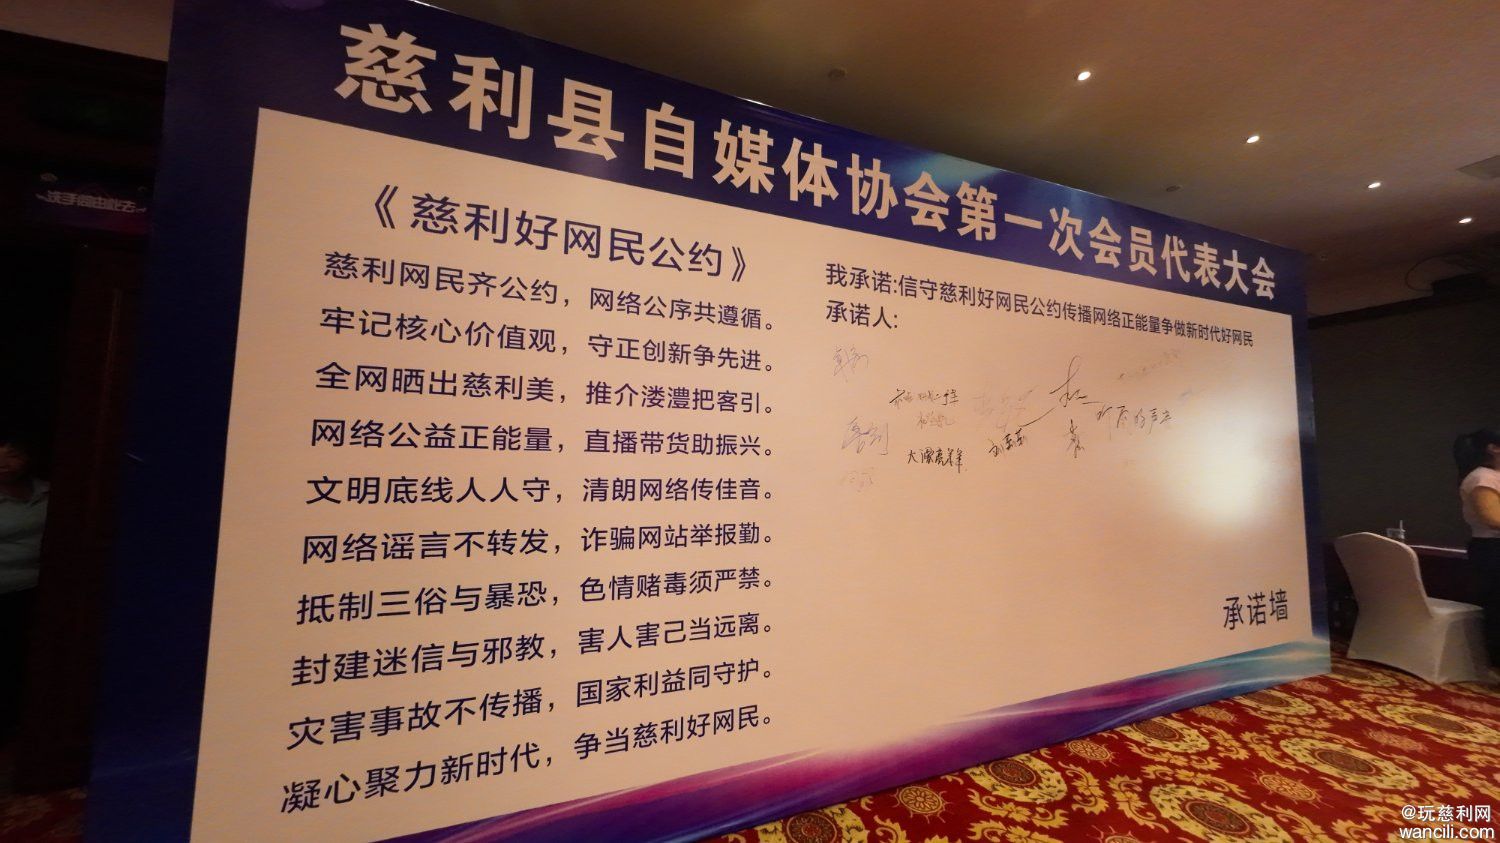 慈利县自媒体协会第一次会员代表大会
《慈利好网民公约》
慈利网民齐公约，网络公序共遵循。
牢记核心价值观，守正创新争先进。
全网晒出慈利美，推介溇澧把客引。
网络公益正能量，直播带货助振兴。
文明底线人人守，清朗网络传佳音。
网络谣言不转发，诈骗网站举报勤。
抵制三俗与暴恐，色情赌毒须严禁。
封建迷信与邪教，害人害己当远离。
灾害事故不传播，国家利益同守护。
凝心聚力新时代，争当慈利好网民。
我承诺:信守慈利好网民公约传播网络正能量争做新时代好网民
承诺人:
承诺墙
@玩慈利网
wancili.com